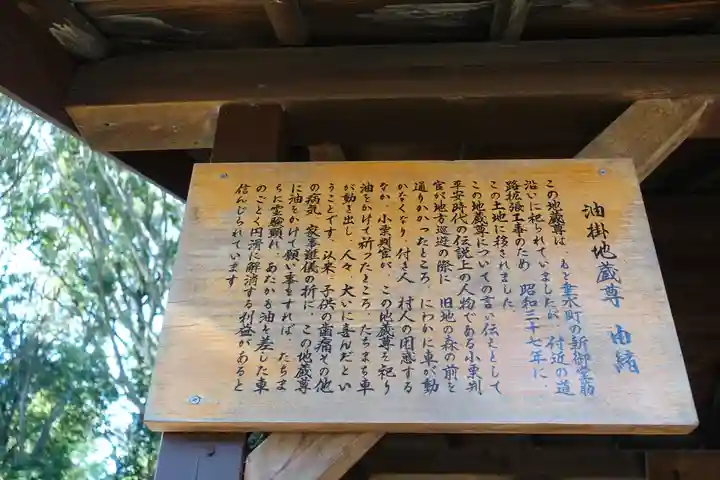 油掛地蔵尊 由緒
この地蔵尊は、もと垂水町の新御堂筋
沿いに祀られていましたが、付近の道
路拡張工事のため、昭和三十七年に、
この土地に移されました。
この地蔵尊についての言い伝えとして
平安時代の伝説上の人物である小栗判
官が地方巡遊の際に、旧地の森の前を
通りかかったところ、にわかに車が動
かなくなり、付き人、村人の困惑する
なか、小栗判官が、この地蔵尊を祀り
油をかけて祈ったところ、たちまち車
が動き出し、人々、大いに喜んだとい
うことです。以来、子供の歯痛その他
の病気、家事進儀の祈に、この地蔵尊
に油をかけて願い事をすれば、たちま
ちに霊験顕れ、あたかも油を差した車
のごとく円滑に解消する利益があると
信んじられています